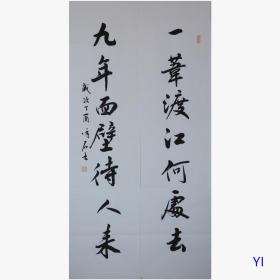 一葦渡江何處去
九年面壁待人来
歲次丁酉
YI